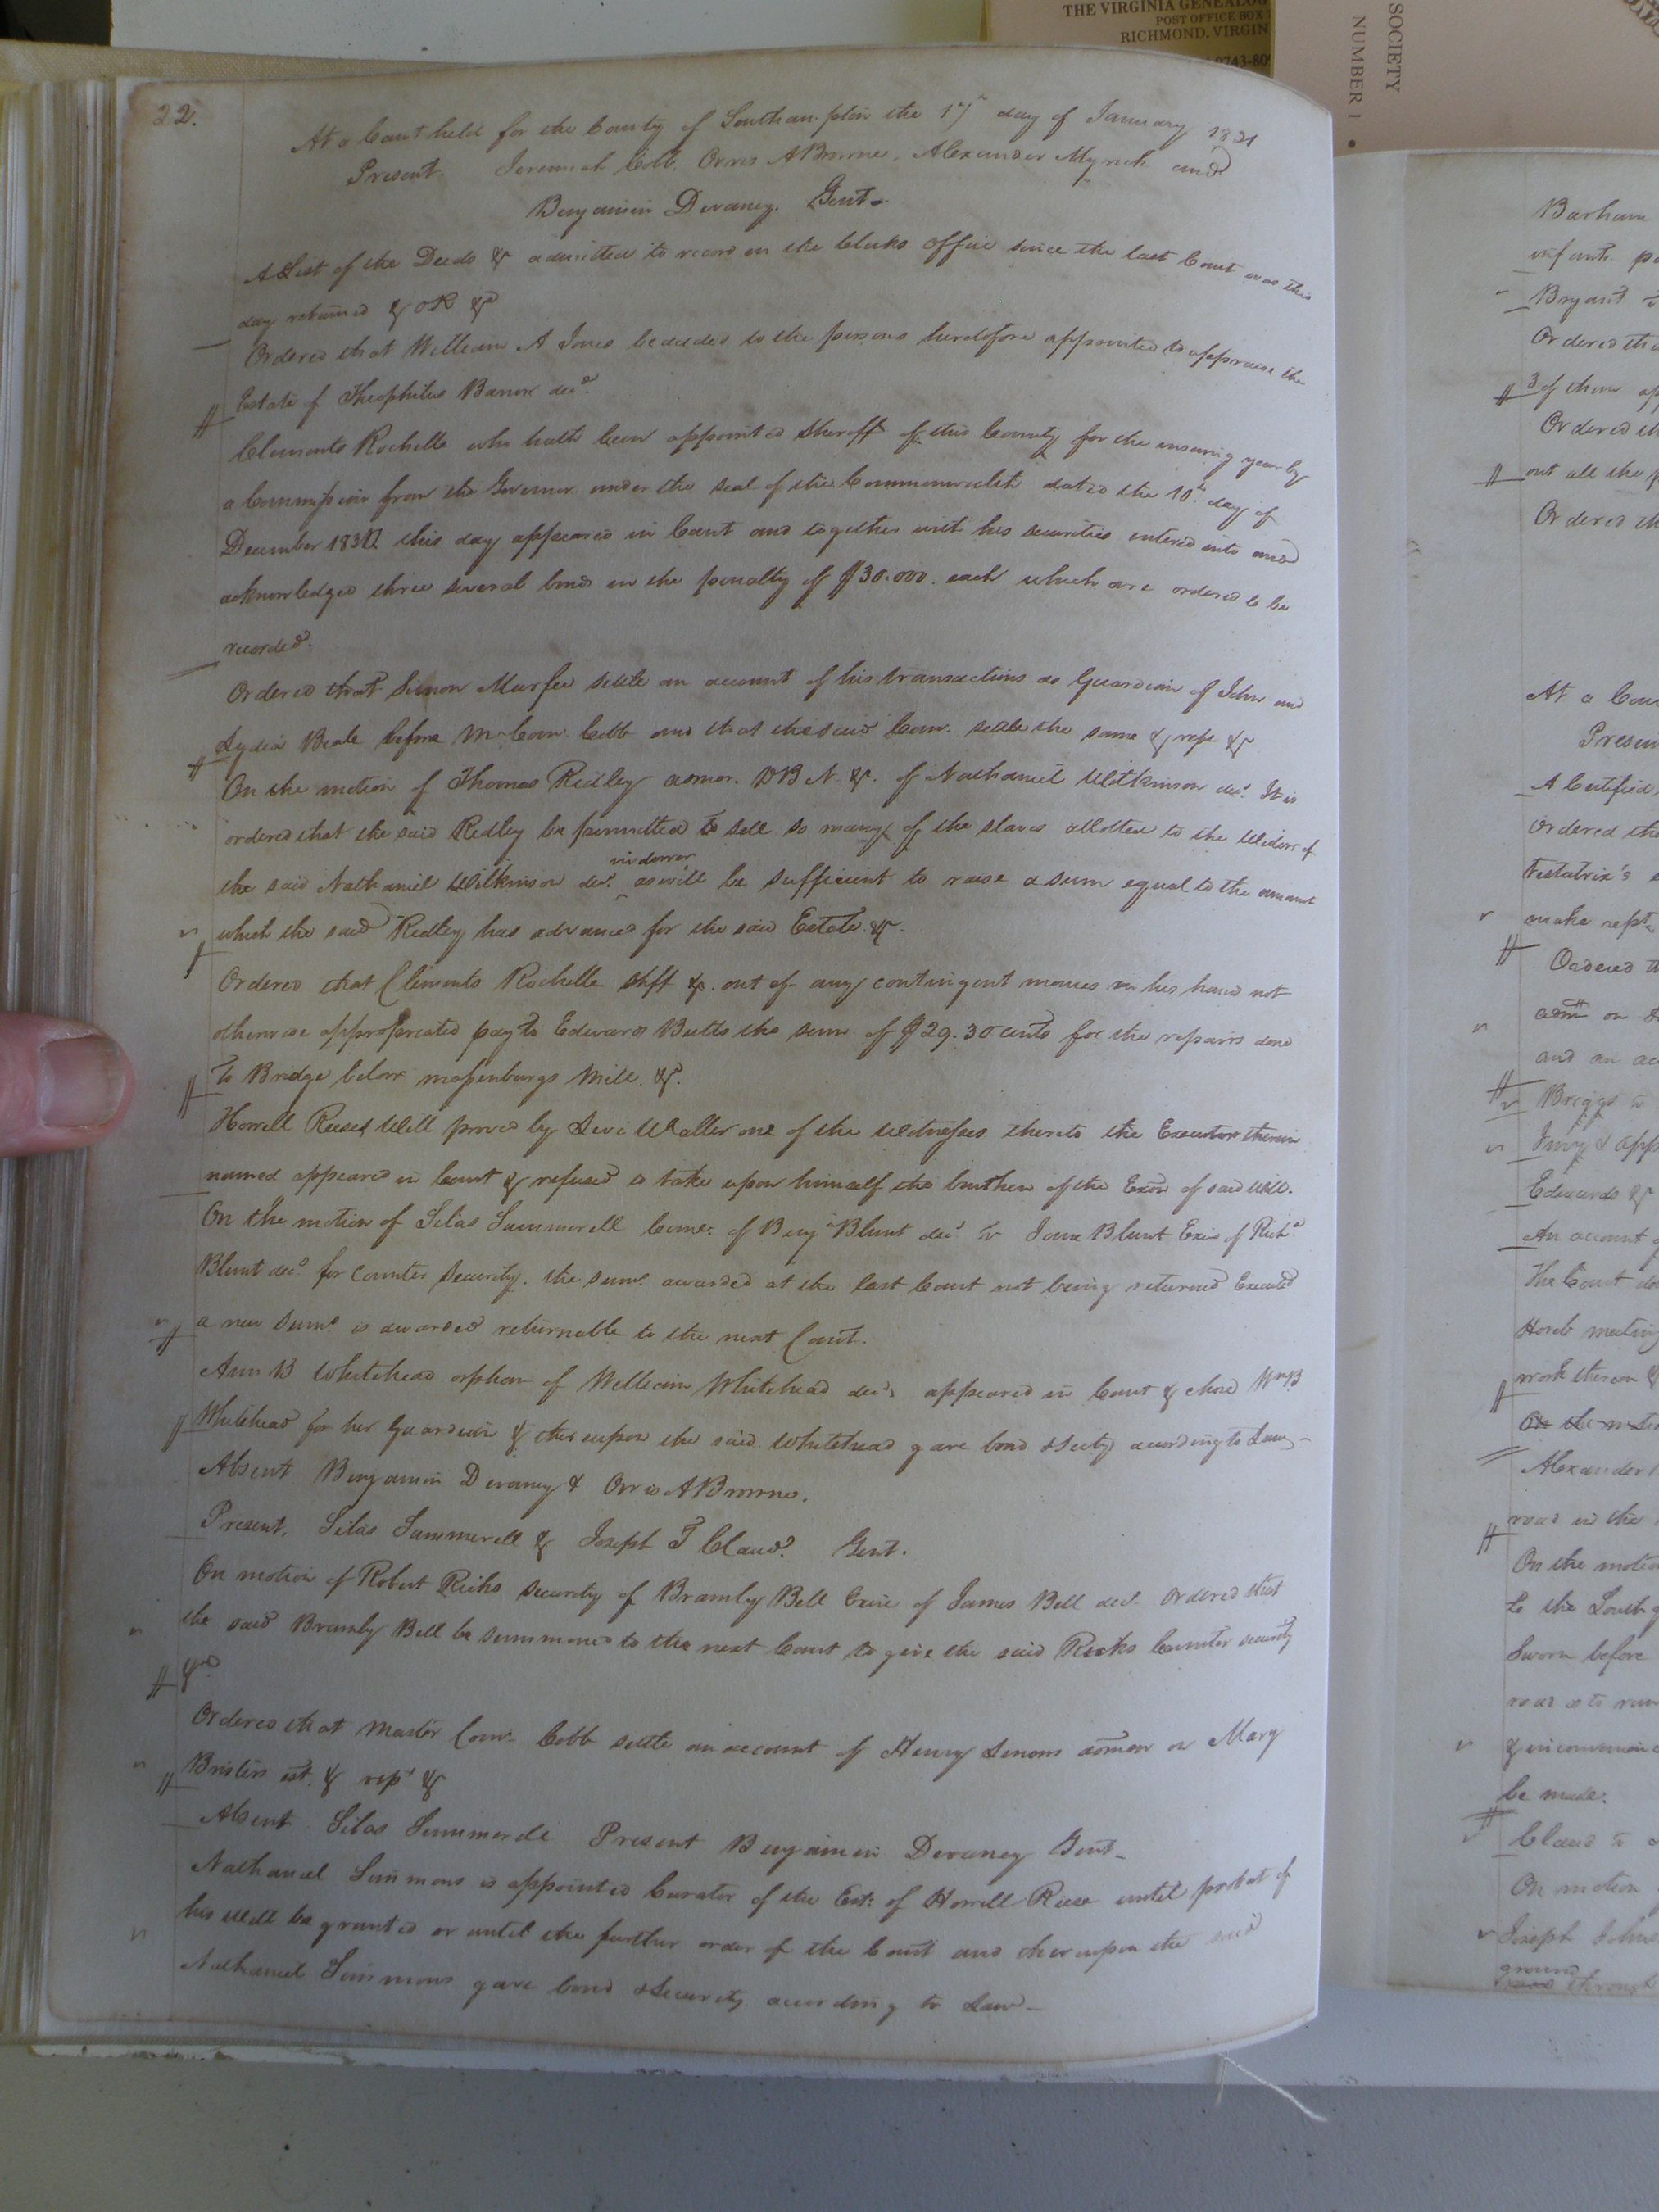 THE VIRGINIA GENEALOG
POST OFFICE BOX
RICHMOND, VIRGIN
SOCIETY
NUMBER 1
22.
At a Court held for the County of Southampton the 17th day of January 1831
Present. Jeremiah Cobb, Orris A Browne, Alexander Myrick and
Benjamin Devaney. Gent
A List of the Deeds & admitted to record in the Clerks office since the last Court was this
day returned & OR &c
Ordered that William A Jones be added to the persons heretofore appointed to appraise the
Estate of Theophilus Barrow decd.
Clements Rochelle who hath been appointed Sheriff of this County for the ensuing year by
a Commission from the Governor under the seal of the Commonwealth dated the 10th day of
December 1830 this day appeared in Court and together with his securities entered into and
acknowledged three several bonds in the penalty of $30.000. each which are ordered to be
recorded.
Ordered that Simon Murfee settle an account of his transactions as Guardian of John and
Lydia Beale before Mr Com. Cobb and that the said Com. settle the same & repo &c
On the motion of Thomas Ridley admor. DBN. &c. of Nathaniel Wilkinson decd. It is
ordered that the said Ridley be permitted to sell so many of the slaves allotted to the Widow of
the said Nathaniel Wilkinson decd. in dower as will be sufficient to raise a sum equal to the amount
which the said Ridley has advanced for the said Estate &c.
Ordered that Clements Rochelle Shff &c. out of any contingent monies in his hand not
otherwise appropriated pay to Edwards Butts the sum of $29.30 cents for the repairs done
To Bridge below massenburgs Mill. &c.
Howell Reese's Will proved by Levi Waller one of the Witnesses thereto the Executor therein
named appeared in Court & refused to take upon himself the burthen of the Exon of said Will.
On the motion of Silas Summerell Come. of Benja Blunt decd vs Jane Blunt Exix of Richd
Blunt decd. for Counter Security. the Sums. awarded at the last Court not being returned Executed
a new Sums is awarded returnable to the next Court.
Ann B Whitehead orphan of William Whitehead decd. appeared in Court & chose Wm B
Whitehead for her Guardian & thereupon the said Whitehead gave bond & Secty according to Law
Absent Benjamin Devaney & Orris A Browne.
Present. Silas Summerell & Joseph T Claud. Gent.
On motion of Robert Ricks security of Bramly Bell Exix of James Bell decd. Ordered that
the said Bramly Bell be summoned to the next Court to give the said Ricks Counter security
&c
Ordered that Master Com. Cobb settle an account of Henry Simons admon on Mary
Bristers est. & rept &c
Absent Silas Summerell Present Benjamin Devaney Gent
Nathaniel Simmons is appointed Curator of the Est. of Howell Reese until probat of
his Will be granted or until the further order of the Court and thereupon the said
Nathaniel Simmons gave bond & Security according to Law
Barham
infants
Bryant
Ordered tha
3 of them
Ordered th
out all the
Ordered th
At a Cou
Presen
A Certified
Ordered tha
Testatrix's
make rept.
Ordered th
adm on
and an
Briggs
Invy & app
Edwards &
An account
The Court
Horeb meeting
work thereon &
On the motion
Alexander
road in the
On the motion
to the South
Sworn before
road as to
& inconvenienc
be made.
Claud
On motion
Joseph Johns
ground
through